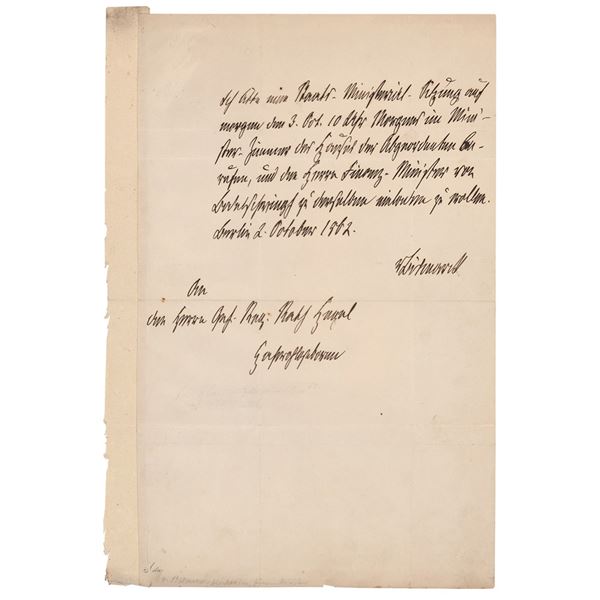 Ich bitte eine Staats-Ministerial-Sitzung auf
morgen den 3. Oct. 10 Uhr Morgens im Mini-
ster-Zimmer des Hauses der Abgeordneten be-
rufen, und den Herrn Finanz-Minister von
Bodelschwingh zu derselben einladen zu wollen.
Berlin 2. October 1862.
vBismarck
An
den Herrn Geh. Reg. Rath Hegel
Hochwohlgeboren